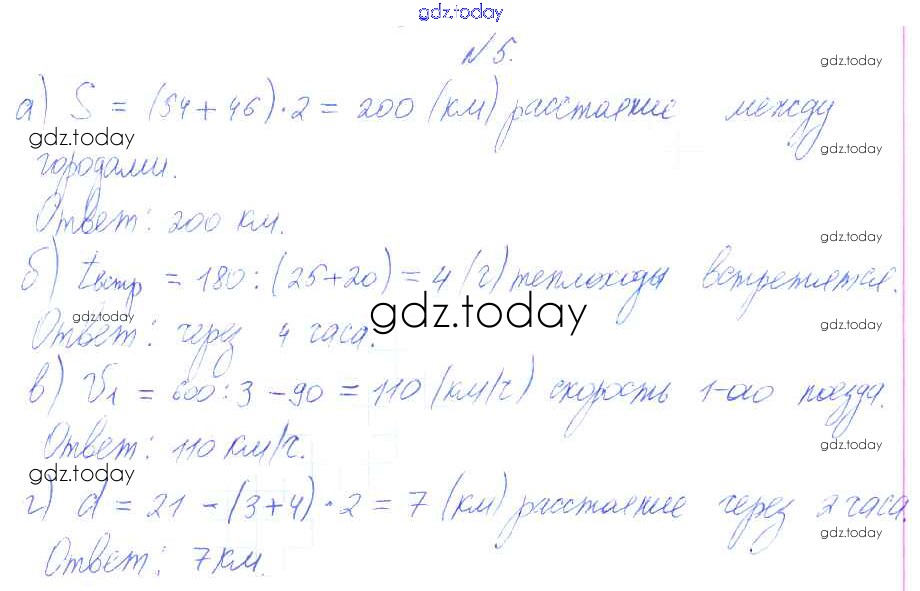 gdz.today
№ 5.
gdz.today
а) S = (54+46)·2 = 200 (км) расстояние между
gdz.today
gdz.today
городами.
Ответ: 200 км.
gdz.today
б) tвстр = 180:(25+20) = 4 (ч) теплоходы встретятся.
gdz.today
gdz.today
gdz.today
Ответ: через 4 часа.
в) V1 = 600:3 -90 = 110 (км/ч) скорость 1-ого поезда.
Ответ: 110 км/ч.
gdz.today
gdz.today
г) d = 21 - (3+4)·2 = 7 (км) расстояние через 2 часа.
gdz.today
Ответ: 7 км.